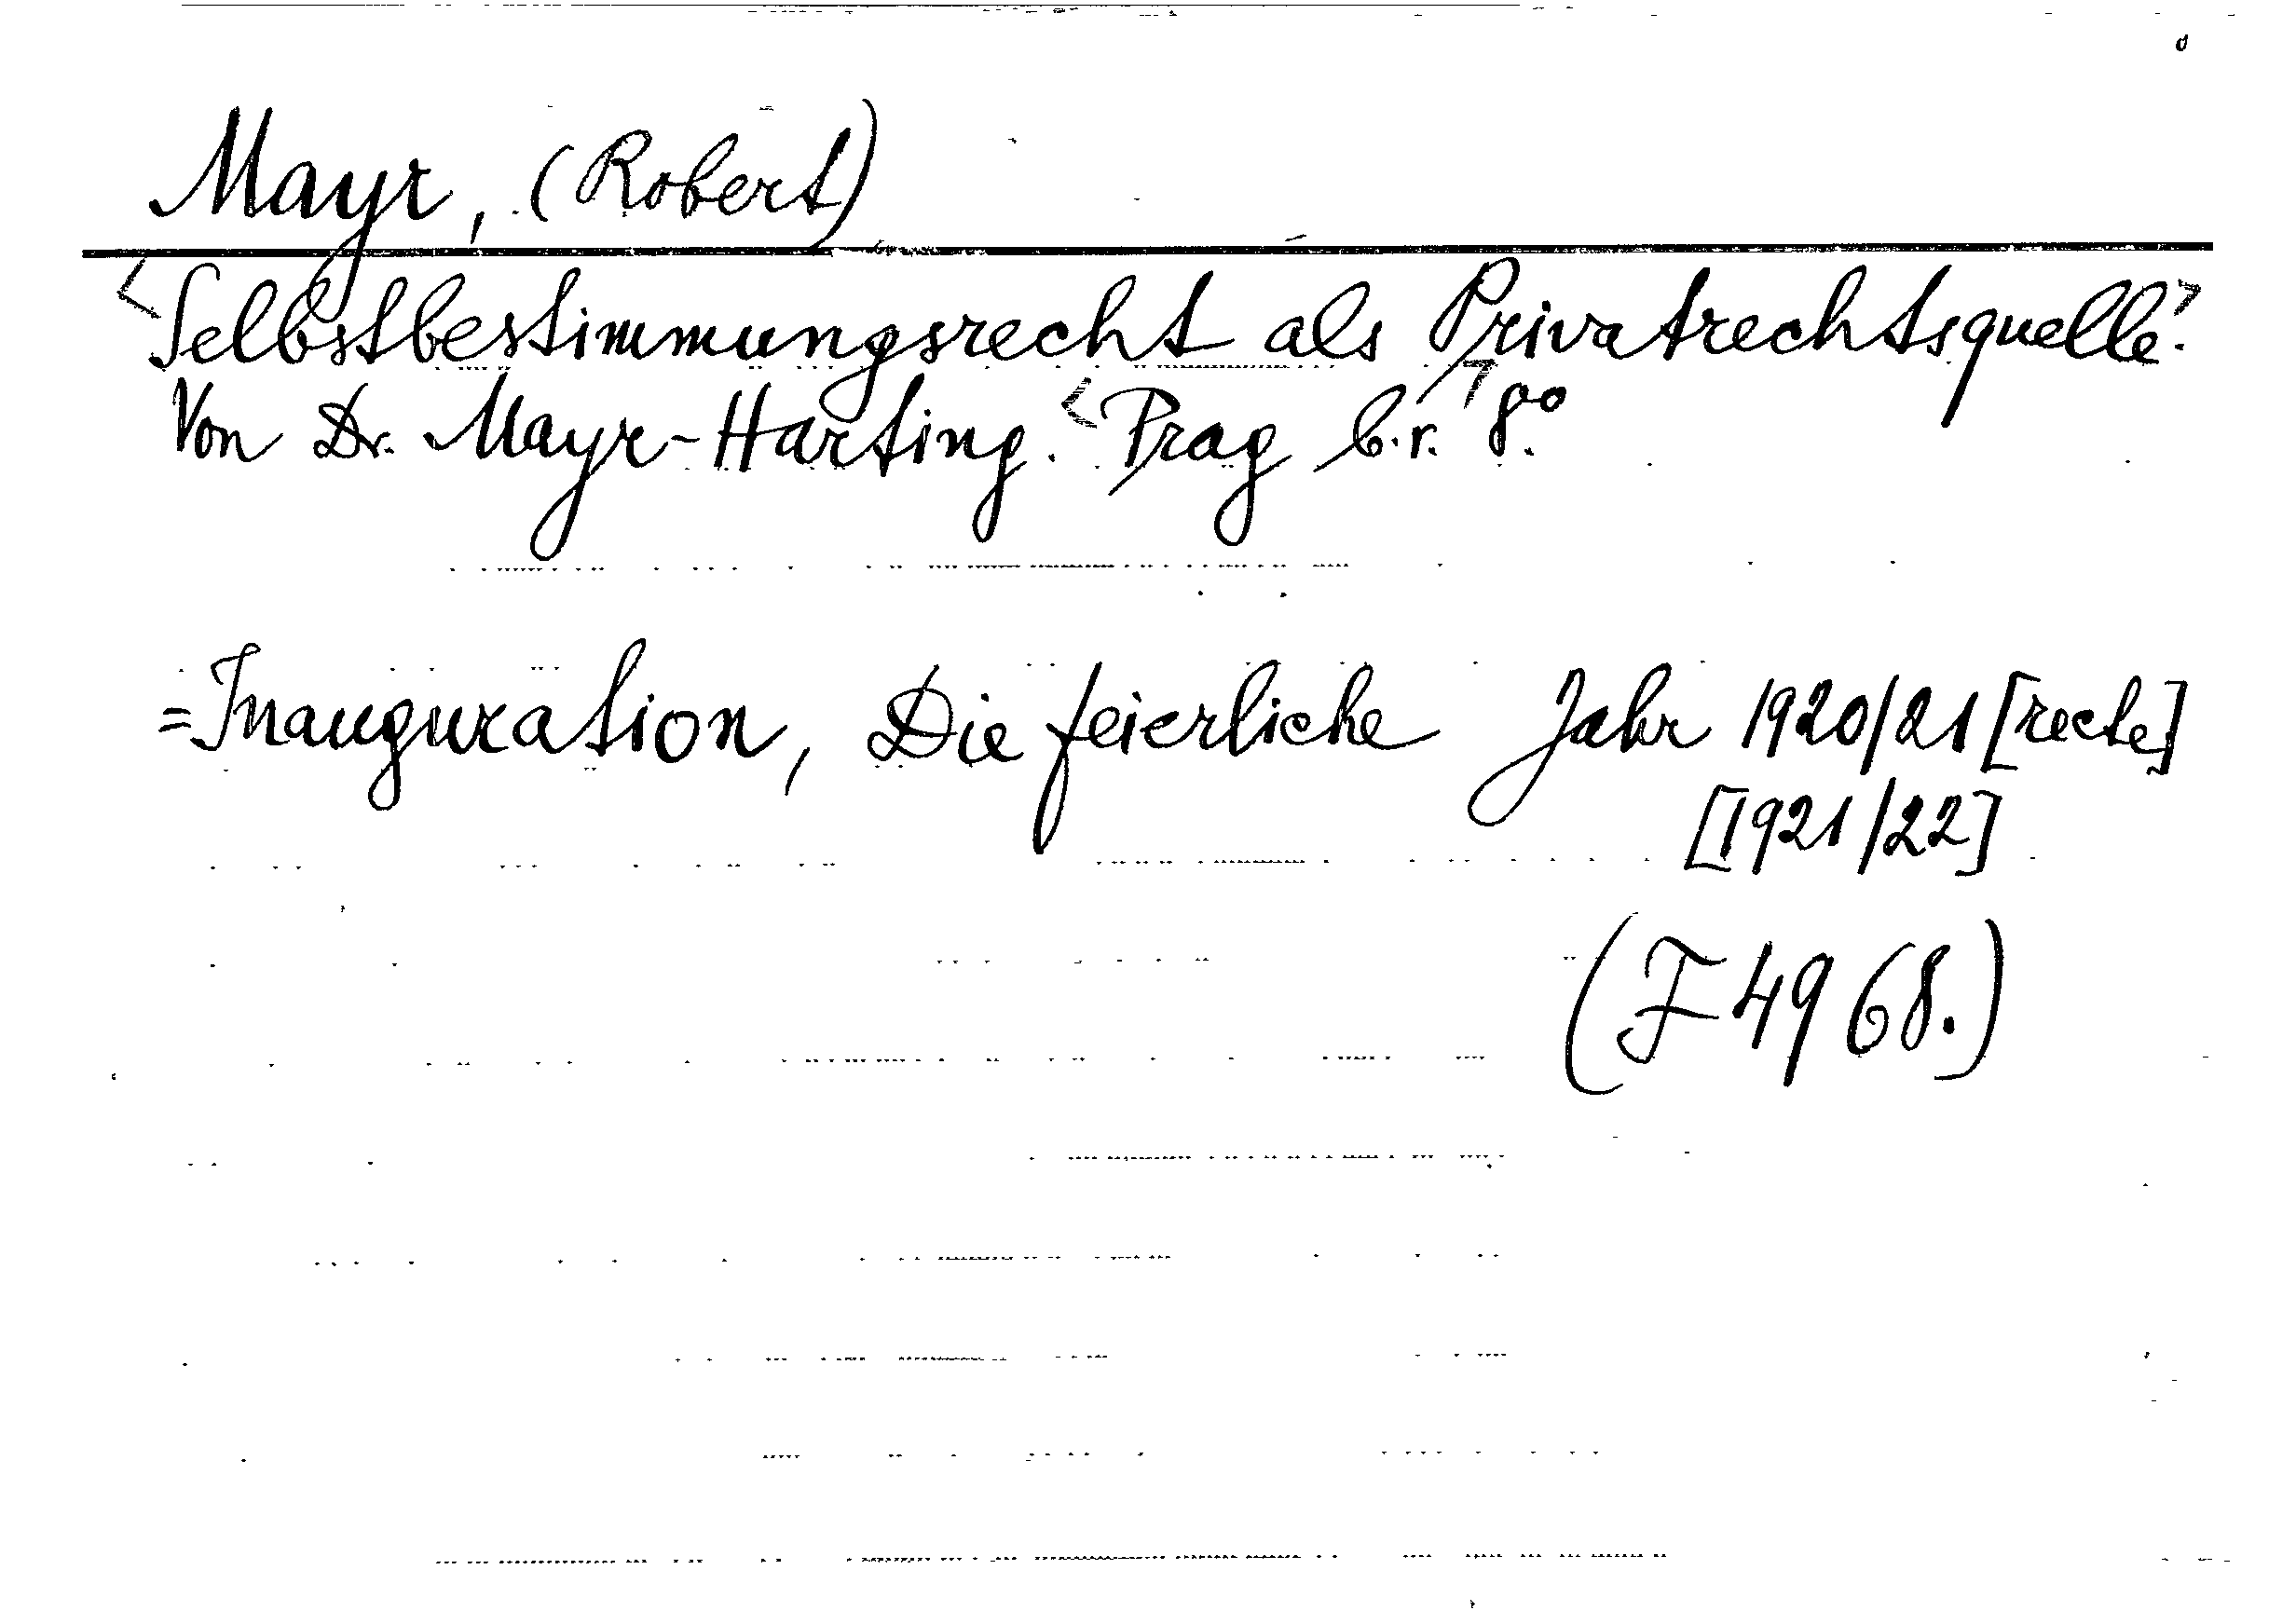 Mayr, (Robert)
<Selbstbestimmungsrecht als Privatrechtsquelle.>
Von Dr. Mayr-Harting. <Prag b. r.> 8°.
=Inauguration, Die feierliche Jahr 1920/21 [recte]
[1921/22]
(F 4968.)